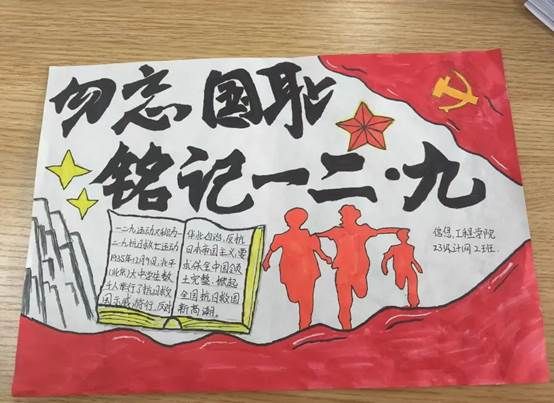 勿忘国耻
铭记一二·九
信息工程学院
23设计网2班.
一二九运动又称为
一二九抗日救亡运动
1935年12月9日,北平
(北京)大中学生数
千人举行了抗日救
国示威游行,反对
华北自治,反抗
日本帝国主义,要
求保全中国领
土完整,掀起
全国抗日救国
新高潮.